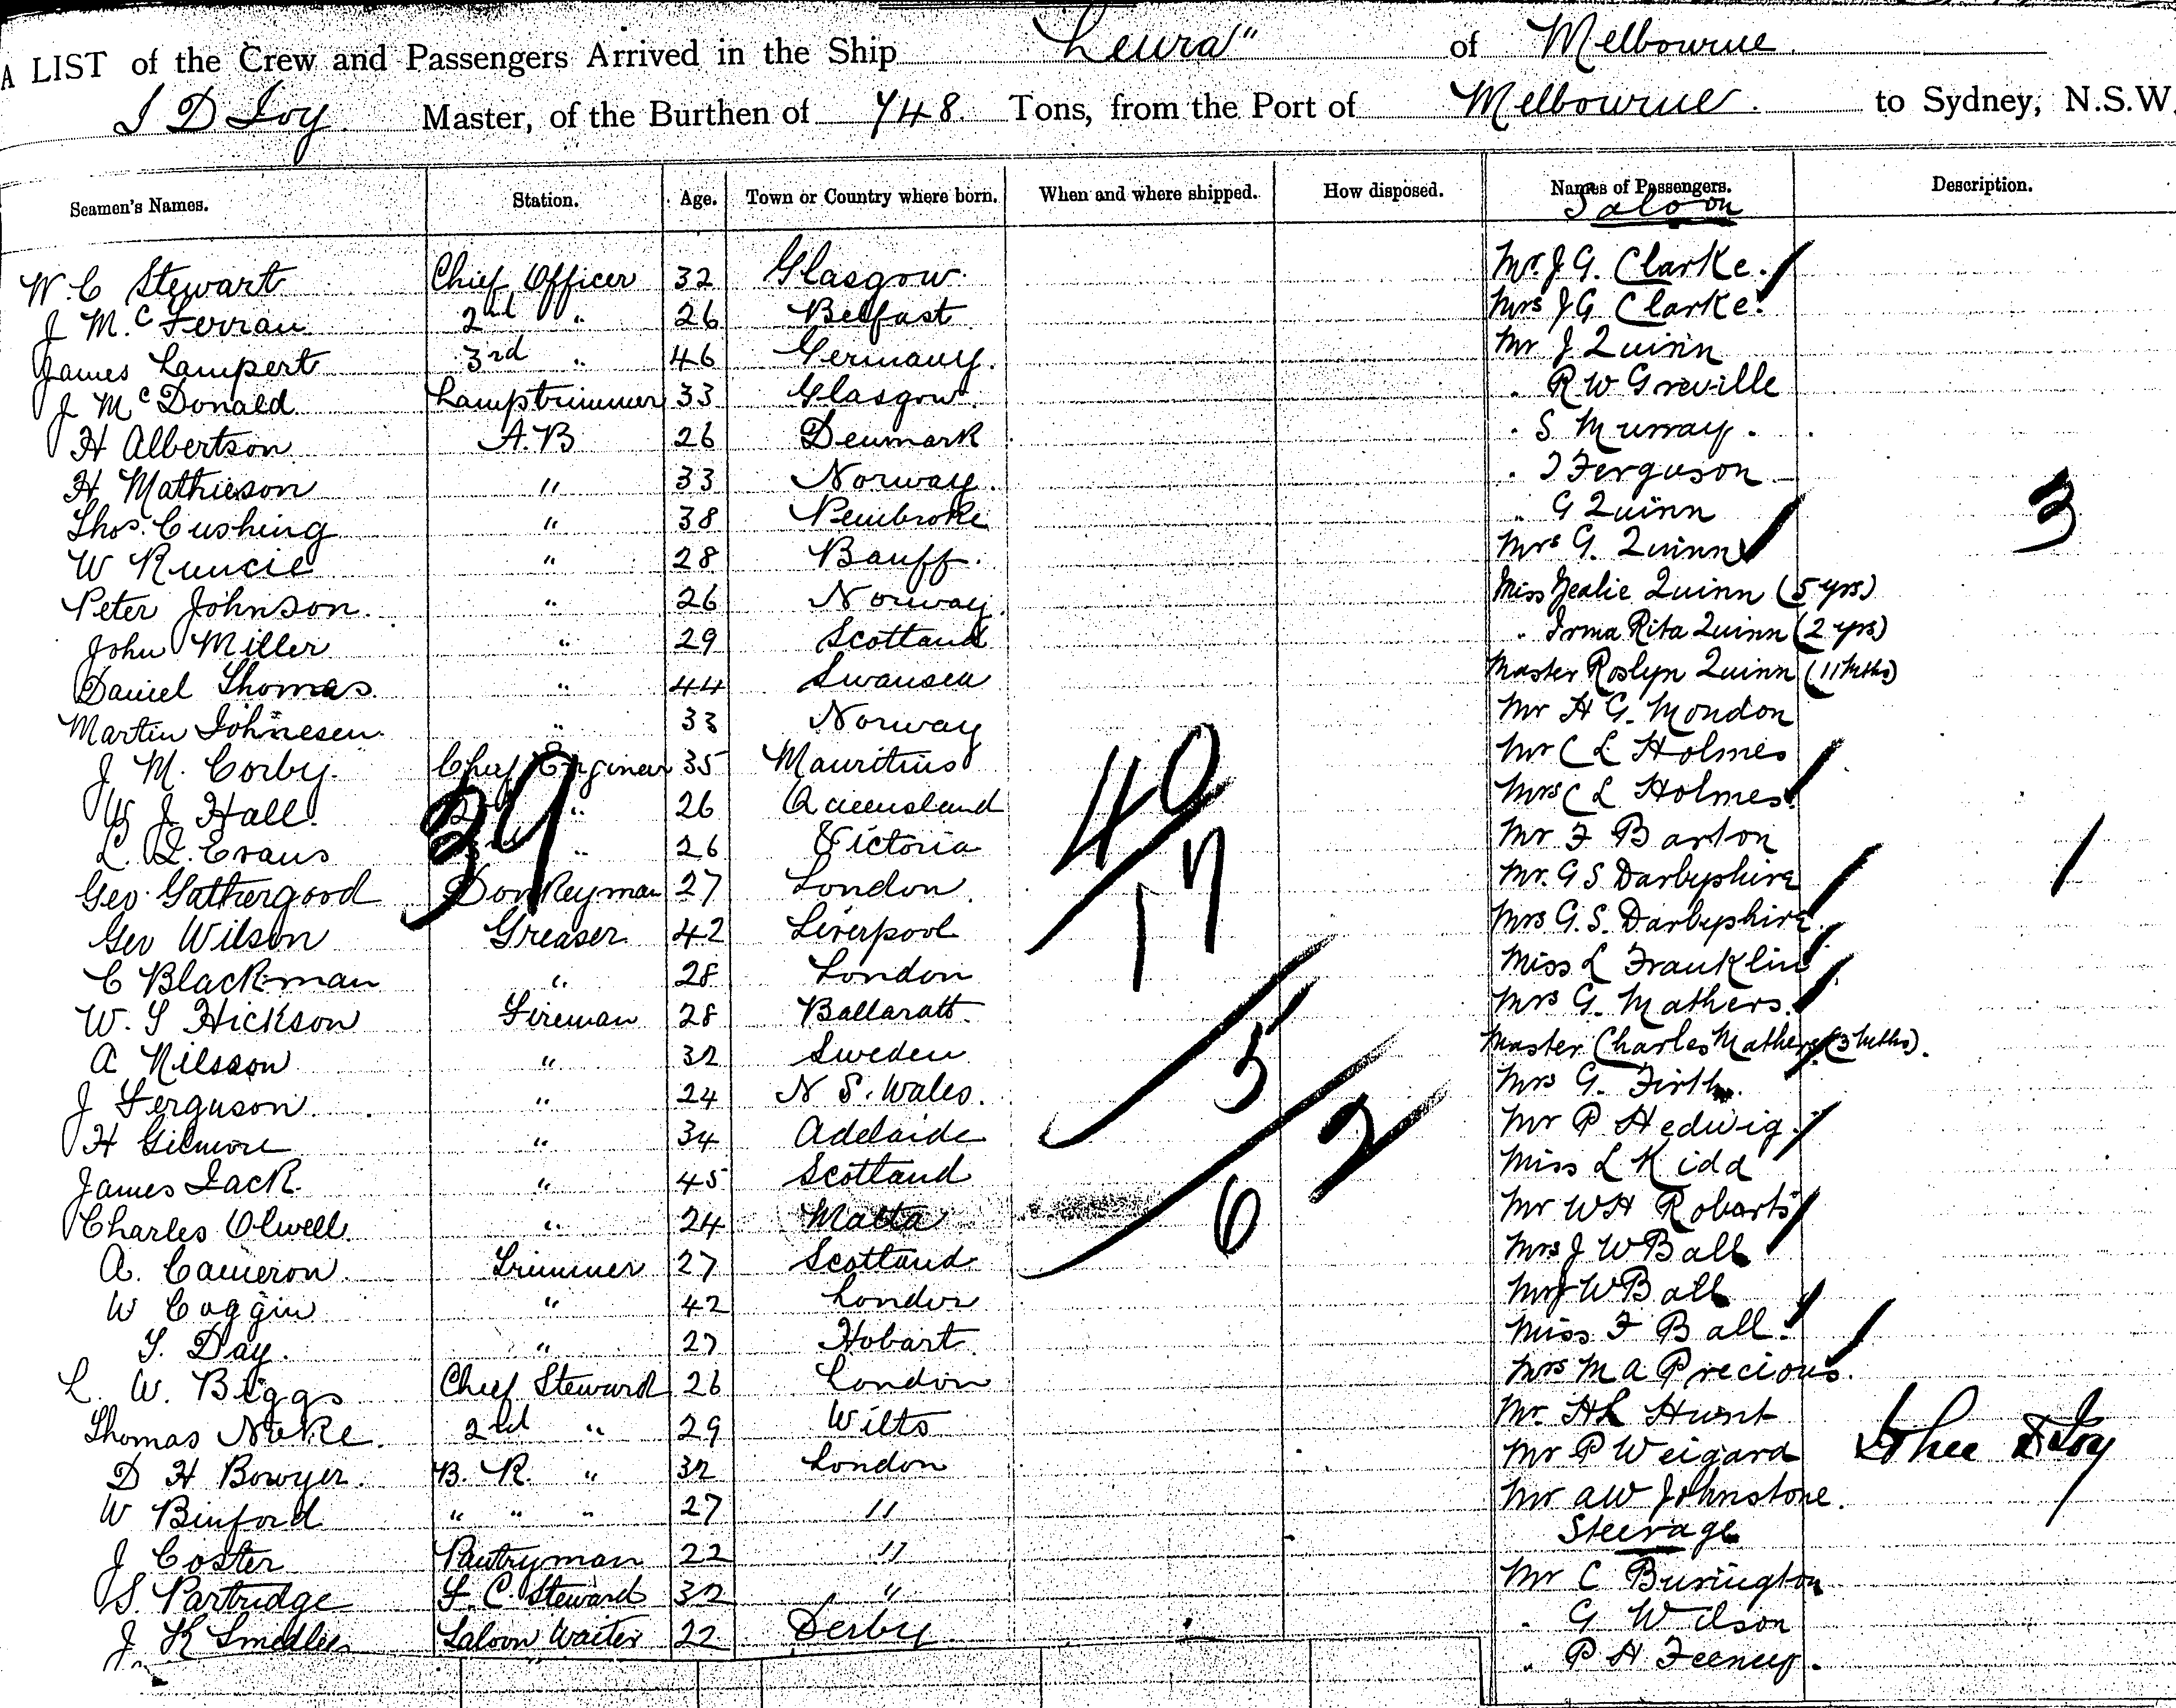 A LIST of the Crew and Passengers Arrived in the Ship "Leura" of Melbourne
J D Joy Master, of the Burthen of 748 Tons, from the Port of Melbourne to Sydney, N.S.W.
Seamen's Names. Station. Age. Town or Country where born. When and where shipped. How disposed. Names of Passengers. Description.
Saloon
W. C Stewart Chief Officer 32 Glasgow Mr. J G. Clarke.
J McFerran 2nd " 26 Belfast Mrs J G Clarke.
James Lampert 3rd " 46 Germany. Mr J Quinn
J McDonald Lamptrimmer 33 Glasgow. " R W Greville
H Albertson A.B 26 Denmark " S Murray.
H. Mathieson " 33 Norway. " J Ferguson
Thos. Cushing " 38 Pembroke " G Quinn 3
W Runcie " 28 Banff. Mrs G. Quinn
Peter Johnson. " 26 Norway. Miss Quinn (5 yrs)
John Miller " 29 Scotland " Irma Rita Quinn (2 yrs)
Daniel Thomas " 44 Swansea Master Roslyn Quinn (11 mths)
Martin Johnesen " 33 Norway Mr H G. Mondon
J M. Corby. Chief Engineer 35 Mauritius Mr C L Holmes
W J Hall. " 26 Queensland 40 Mrs C L Holmes.
L. Evans 39 " 26 Victoria 17 Mr F Barton
Geo Gathergood Donkeyman 27 London Mr. G S Darbyshire
Geo Wilson Greaser 42 Liverpool Mrs G. S. Darbyshire.
C Blackman " 28 London Miss L Franklin
W. Hickson Fireman 28 Ballaratt. Mrs G. Mathers.
A Nilsson " 32 Sweden 5 Master Charles Mathers (3 mths).
J Ferguson. " 24 N. S. Wales. Mrs G. Firth.
H Gilmore " 34 Adelaide 2 Mr P Hedwig.
James Jack. " 45 Scotland Miss L Kidd
Charles Olwell " 24 Malta 6 Mr W H Robarts
A. Cameron. Trimmer 27 Scotland Mrs J W Ball
W Coggin " 42 London W Ball
Day. " 27 Hobart. Miss F Ball.
L. W. Biggs Chief Steward 26 London Mrs M A Precious.
Thomas 2nd " 29 Wilts Mr. H L Hunt
D H Bowyer. B. R. " 32 London Mr P Weigard Joy
W Binford " " " 27 " Mr A W Johnstone.
Steerage
J Coster Pantryman 22 " Mr C Burington
S. Partridge F. C. Steward 32 " " G Wilson
J K Smedley Saloon Waiter 22 Derby " P H Feeney.